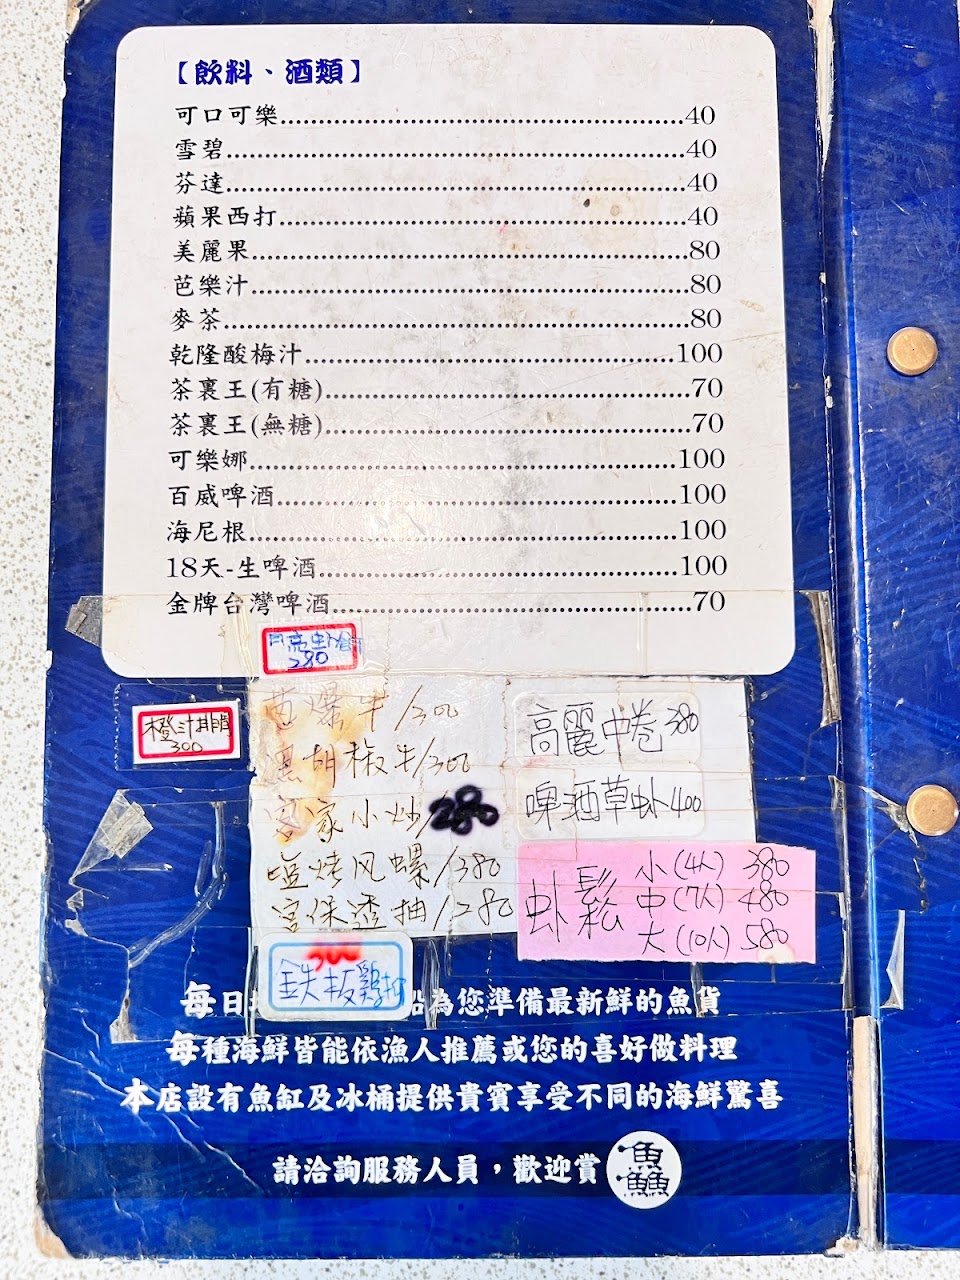 【飲料、酒類】
可口可樂 40
雪碧 40
芬達 40
蘋果西打 40
美麗果 80
芭樂汁 80
麥茶 80
乾隆酸梅汁 100
茶裏王(有糖) 70
茶裏王(無糖) 70
可樂娜 100
百威啤酒 100
海尼根 100
18天-生啤酒 100
金牌台灣啤酒 70
280
橙汁排骨
300
蔥爆牛/300
黑胡椒牛/300
客家小炒/280
塩烤风螺/380
宮保透抽/280
高麗中卷380
啤酒草虾400
虾鬆
小(4人) 380
中(7人) 480
大(10人) 580
300
鉄板雞
每日 船為您準備最新鮮的魚貨
每種海鮮皆能依漁人推薦或您的喜好做料理
本店設有魚缸及冰桶提供貴賓享受不同的海鮮驚喜
請洽詢服務人員，歡迎賞